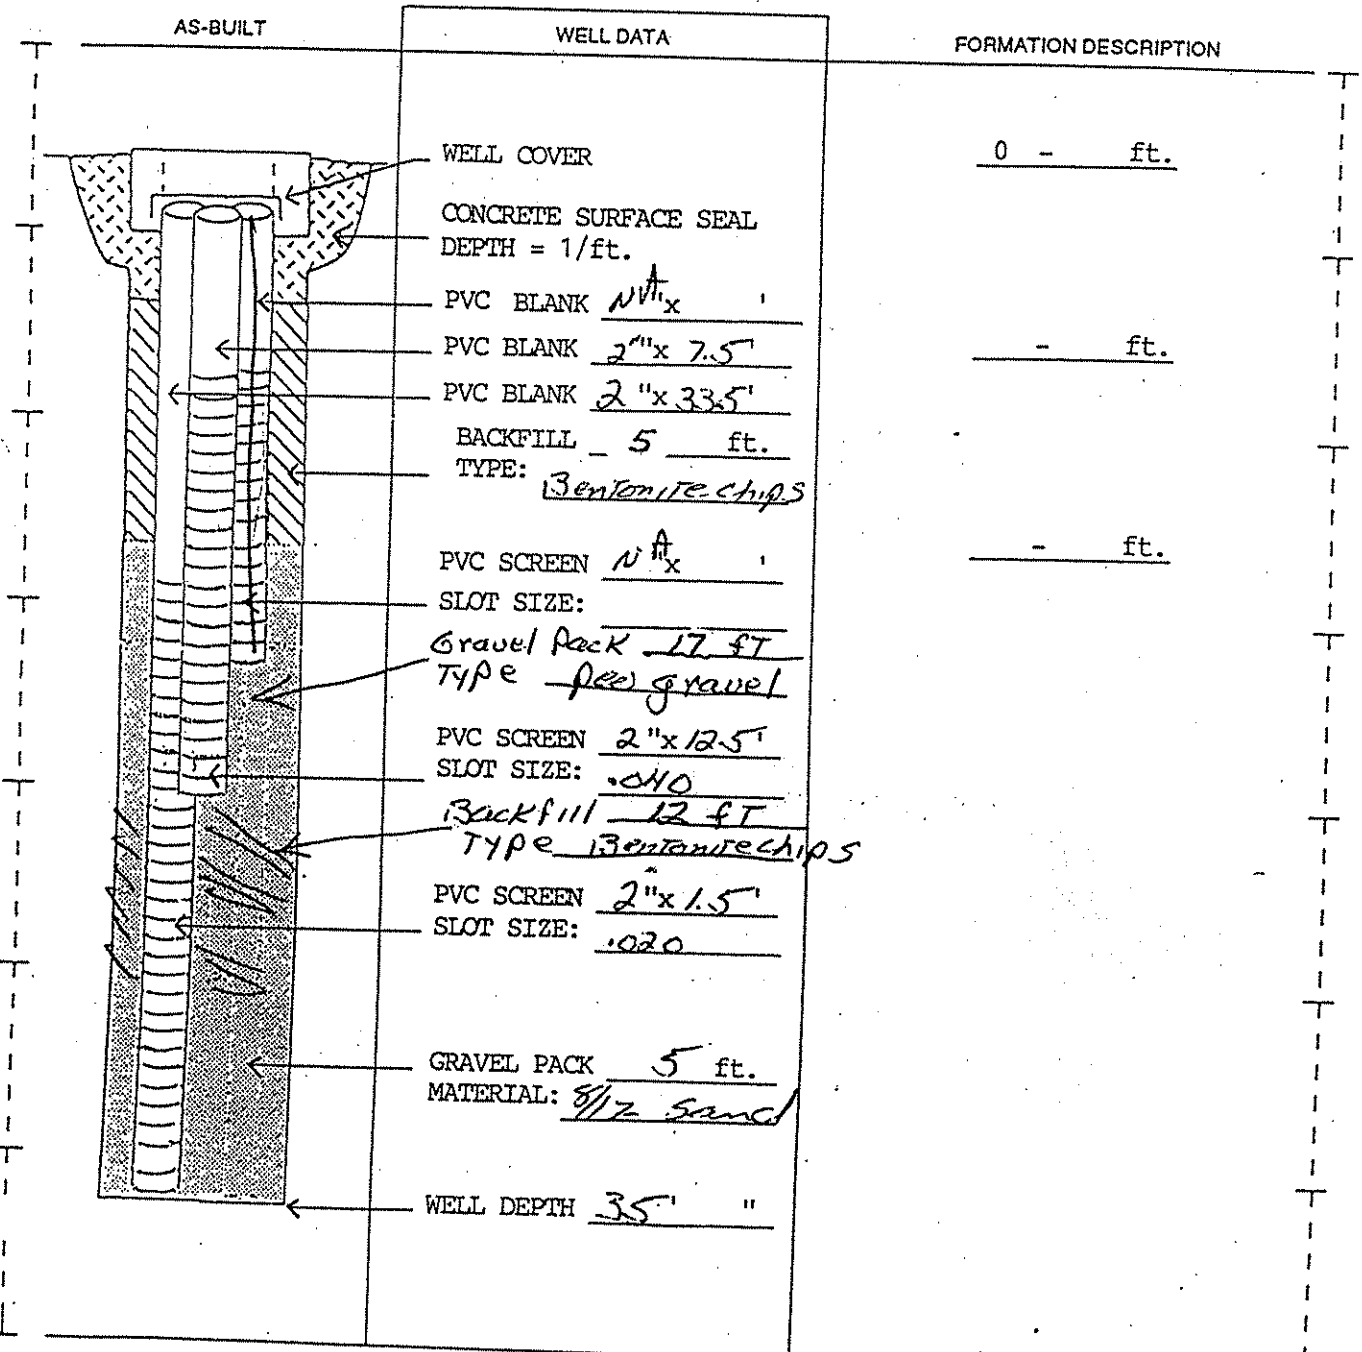 AS-BUILT
WELL DATA
FORMATION DESCRIPTION
WELL COVER
0 - ft.
CONCRETE SURFACE SEAL
DEPTH = 1/ft.
PVC BLANK NA "x '
PVC BLANK 2""x 7.5'
- ft.
PVC BLANK 2 "x 33.5'
BACKFILL 5 ft.
TYPE: Bentonite chips
PVC SCREEN NA "x '
- ft.
SLOT SIZE:
Gravel Pack 17 fT
Type pea gravel
PVC SCREEN 2 "x 12.5'
SLOT SIZE: .040
Backfill 12 fT
Type Bentonite chips
PVC SCREEN 2 "x 1.5'
SLOT SIZE: .020
GRAVEL PACK 5 ft.
MATERIAL: 8/12 Sand
WELL DEPTH 35' "